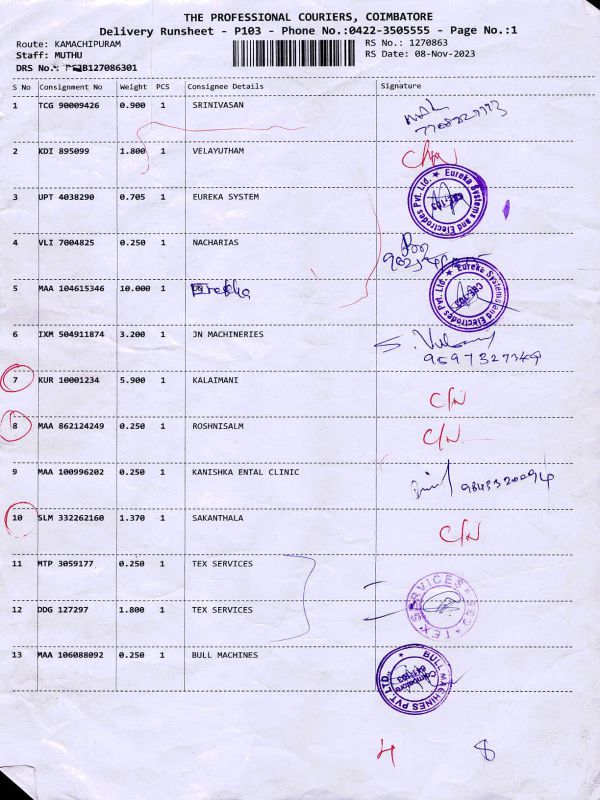 THE PROFESSIONAL COURIERS, COIMBATORE
Delivery Runsheet - P103 - Phone No.:0422-3505555 - Page No.:1
Route: KAMACHIPURAM
RS No.: 1270863
Staff: MUTHU
RS Date: 08-Nov-2023
DRS No.: B127086301
S No Consignment No Weight PCS Consignee Details Signature
1 TCG 90009426 0.900 1 SRINIVASAN
2 KDI 895099 1.800 1 VELAYUTHAM
3 UPT 4038290 0.705 1 EUREKA SYSTEM
Eureka Systems and Electrodes Pvt. Ltd.
4 VLI 7004825 0.250 1 NACHARIAS
5 MAA 104615346 10.000 1
Eureka Systems and Electrodes Pvt. Ltd.
6 IXM 504911874 3.200 1 JN MACHINERIES
9597327349
7 KUR 10001234 5.900 1 KALAIMANI
C/N
8 MAA 862124249 0.250 1 ROSHNISALM
C/N
9 MAA 100996202 0.250 1 KANISHKA ENTAL CLINIC
10 SLM 332262160 1.370 1 SAKANTHALA
C/N
11 MTP 3059177 0.250 1 TEX SERVICES
12 DDG 127297 1.800 1 TEX SERVICES
TEX SERVICES
13 MAA 106088092 0.250 1 BULL MACHINES
BULL MACHINES PVT. LTD. Coimbatore
4 8